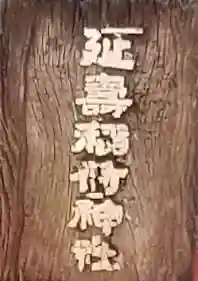 延壽稲荷神社